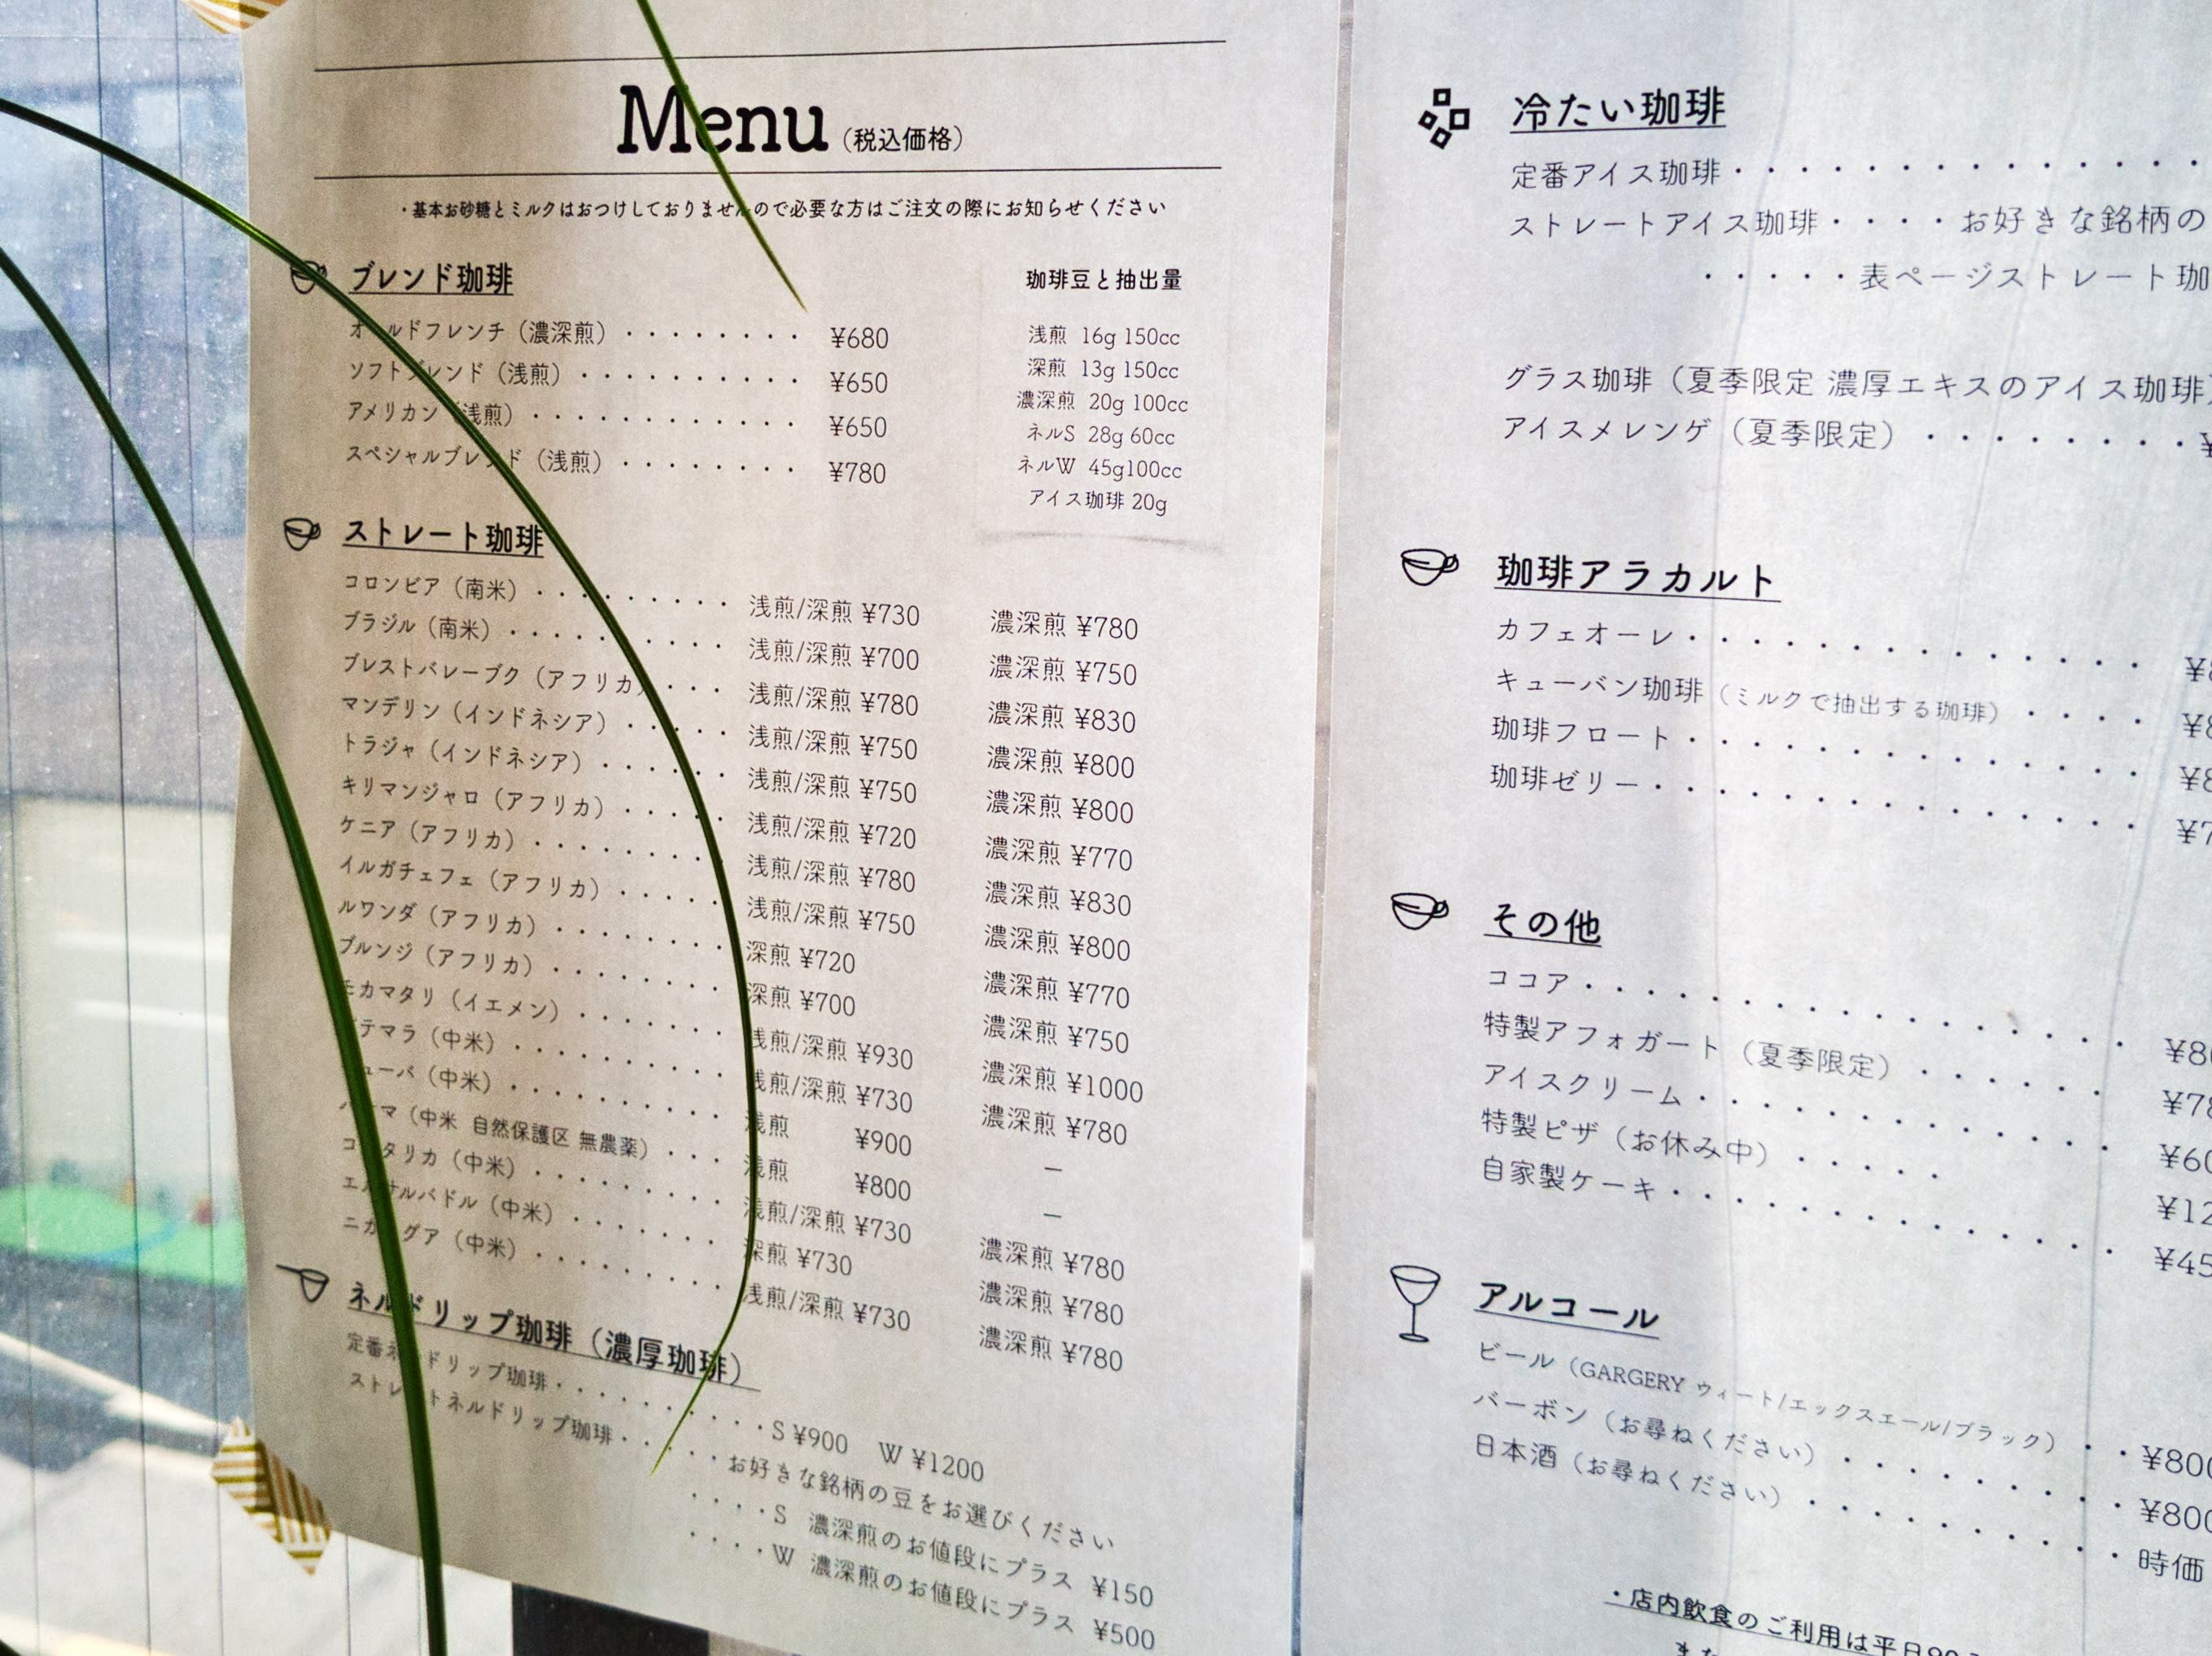 Menu（税込価格）
・基本お砂糖とミルクはおつけしておりませんので必要な方はご注文の際にお知らせください
ブレンド珈琲
オールドフレンチ（濃深煎）・・・・・・・・・ ¥680
ソフトブレンド（浅煎）・・・・・・・・・・ ¥650
アメリカン（浅煎）・・・・・・・・・・・・ ¥650
スペシャルブレンド（浅煎）・・・・・・・・ ¥780
珈琲豆と抽出量
浅煎 16g 150cc
深煎 13g 150cc
濃深煎 20g 100cc
ネルS 28g 60cc
ネルW 45g100cc
アイス珈琲 20g
ストレート珈琲
コロンビア（南米）・・・・・・・・・ 浅煎/深煎 ¥730 濃深煎 ¥780
ブラジル（南米）・・・・・・・・・・ 浅煎/深煎 ¥700 濃深煎 ¥750
ブレストバレーブク（アフリカ）・・・ 浅煎/深煎 ¥780 濃深煎 ¥830
マンデリン（インドネシア）・・・・・ 浅煎/深煎 ¥750 濃深煎 ¥800
トラジャ（インドネシア）・・・・・・ 浅煎/深煎 ¥750 濃深煎 ¥800
キリマンジャロ（アフリカ）・・・・・ 浅煎/深煎 ¥720 濃深煎 ¥770
ケニア（アフリカ）・・・・・・・・・ 浅煎/深煎 ¥780 濃深煎 ¥830
イルガチェフェ（アフリカ）・・・・・ 浅煎/深煎 ¥750 濃深煎 ¥800
ルワンダ（アフリカ）・・・・・・・・ 深煎 ¥720 濃深煎 ¥770
ブルンジ（アフリカ）・・・・・・・・ 深煎 ¥700 濃深煎 ¥750
モカマタリ（イエメン）・・・・・・・ 浅煎/深煎 ¥930 濃深煎 ¥1000
グァテマラ（中米）・・・・・・・・・ 浅煎/深煎 ¥730 濃深煎 ¥780
キューバ（中米）・・・・・・・・・・ 浅煎 ¥900 ー
パナマ（中米 自然保護区 無農薬）・・・ 浅煎 ¥800 ー
コスタリカ（中米）・・・・・・・・・ 浅煎/深煎 ¥730 濃深煎 ¥780
エルサルバドル（中米）・・・・・・・ 深煎 ¥730 濃深煎 ¥780
ニカラグア（中米）・・・・・・・・・ 浅煎/深煎 ¥730 濃深煎 ¥780
ネルドリップ珈琲（濃厚珈琲）
定番ネルドリップ珈琲・・・・・・・・・S ¥900 W ¥1200
ストレートネルドリップ珈琲・・・・・お好きな銘柄の豆をお選びください
・・・・S 濃深煎のお値段にプラス ¥150
・・・・W 濃深煎のお値段にプラス ¥500
冷たい珈琲
定番アイス珈琲・・・・・・・・・・・・・・
ストレートアイス珈琲・・・・お好きな銘柄の
・・・・・表ページストレート珈
グラス珈琲（夏季限定 濃厚エキスのアイス珈琲）
アイスメレンゲ（夏季限定）・・・・・・・・ ¥
珈琲アラカルト
カフェオーレ・・・・・・・・・・・・・・
キューバン珈琲（ミルクで抽出する珈琲）・・・・
珈琲フロート・・・・・・・・・・・・・・
珈琲ゼリー・・・・・・・・・・・・・・・
その他
ココア・・・・・・・・・・・・・・・・
特製アフォガート（夏季限定）・・・・・・
アイスクリーム・・・・・・・・・・・・
特製ピザ（お休み中）・・・・・
自家製ケーキ・・・・・・・・・・・・・
アルコール
ビール（GARGERY ウィート/エックスエール/ブラック）・・¥800
バーボン（お尋ねください）・・・・・・・・・ ¥800
日本酒（お尋ねください）・・・・・・・・・・時価
・店内飲食のご利用は平日90
また